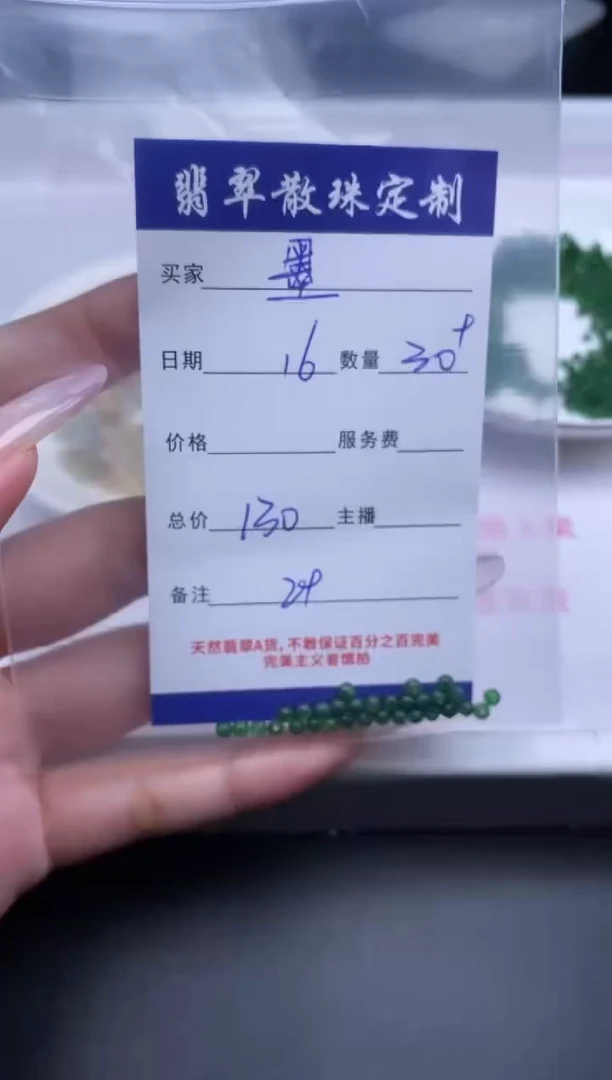 翡翠散珠定制
买家 墨
日期 16 数量 30+
价格 服务费
总价 130 主播
备注
天然翡翠A货,不敢保证百分之百完美
完美主义者慎拍